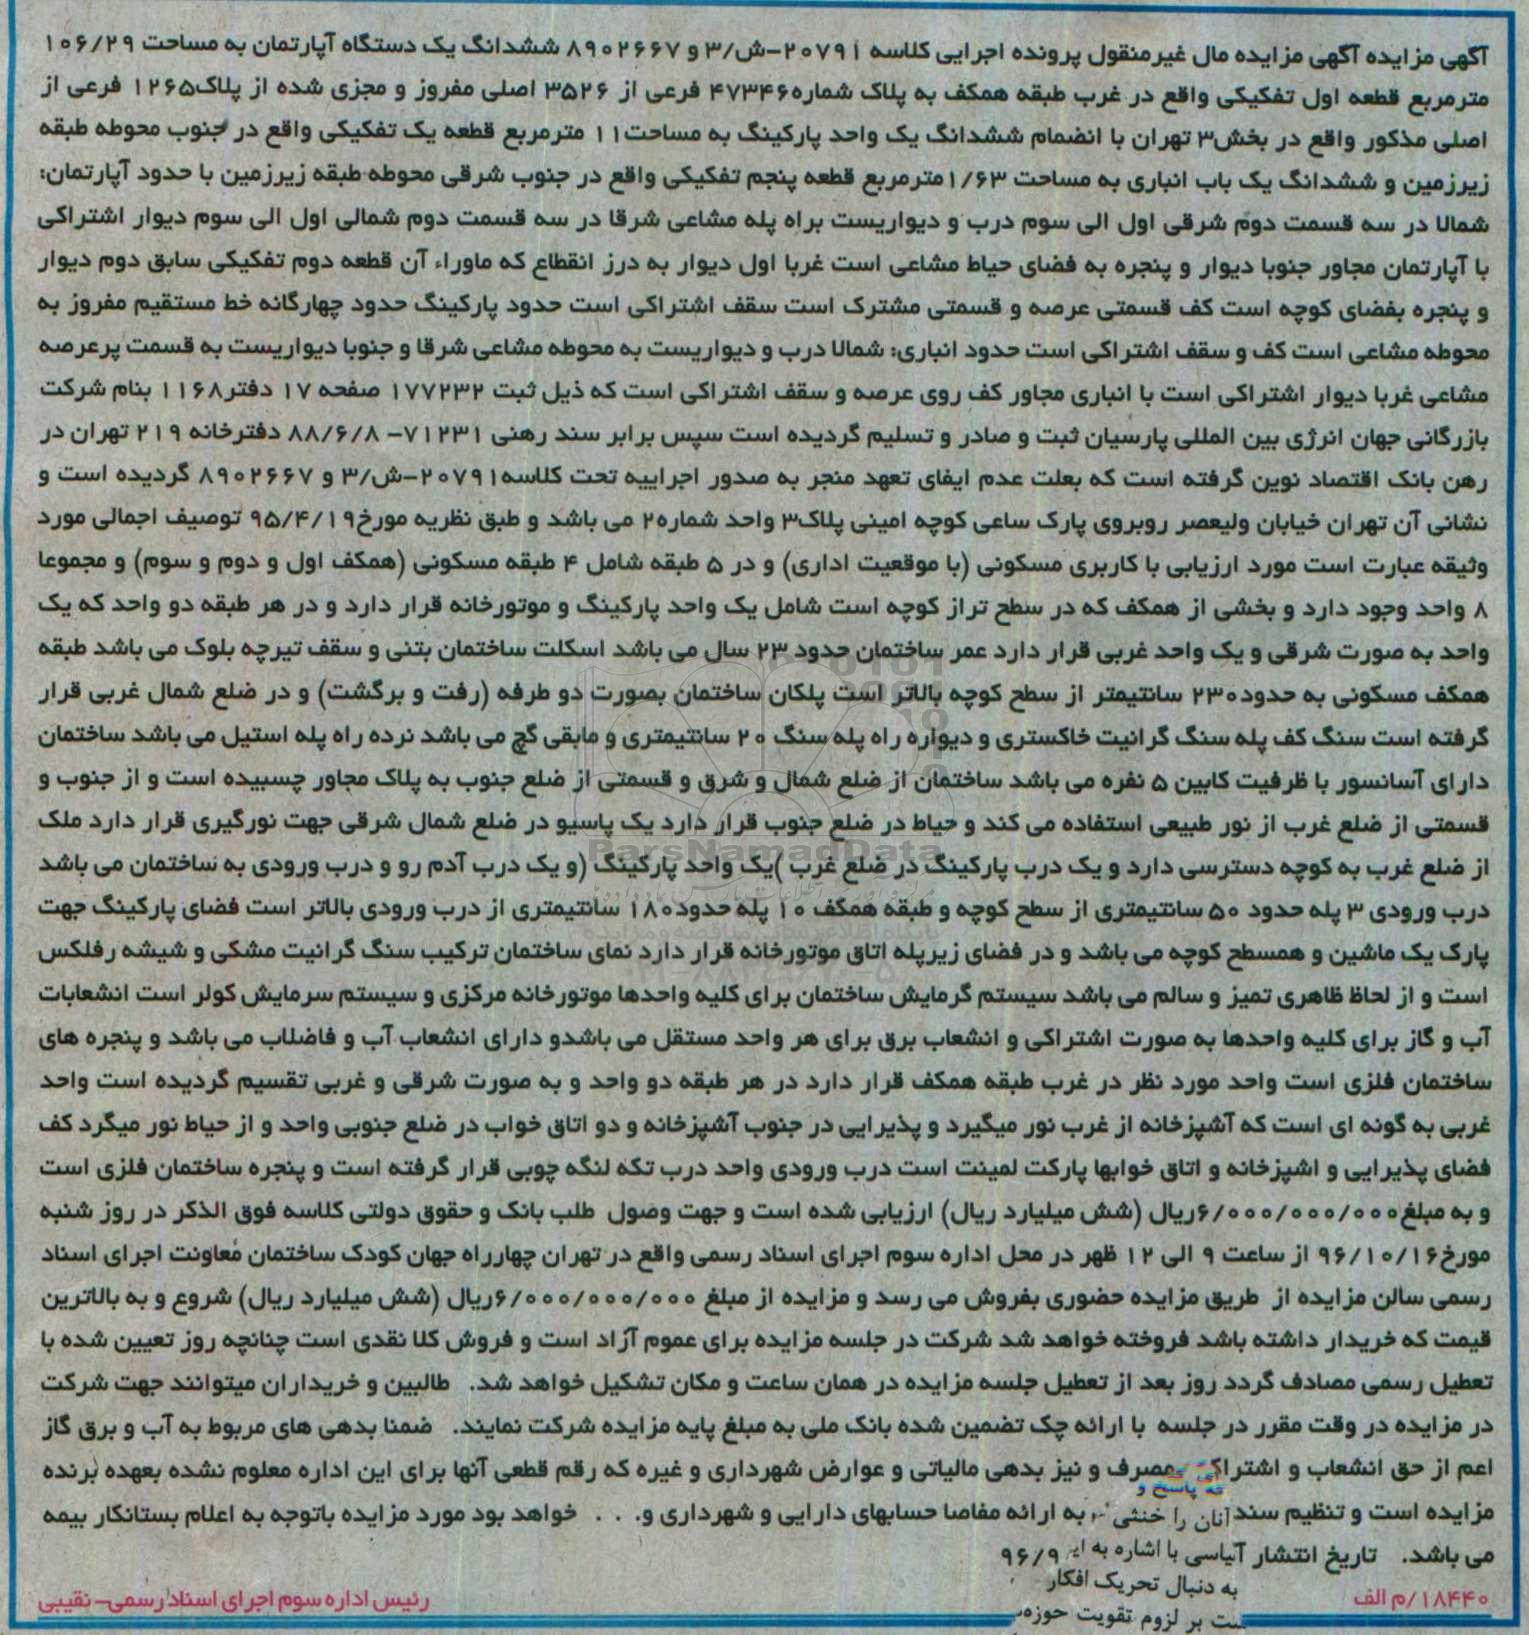 آگهی مزایده آگهی مزایده مال غیرمنقول پرونده اجرایی کلاسه ۲۰۷۹۱-ش/۳ و ۸۹۰۲۶۶۷ ششدانگ یک دستگاه آپارتمان به مساحت ۱۰۶/۲۹
مترمربع قطعه اول تفکیکی واقع در غرب طبقه همکف به پلاک شماره۴۷۳۴۶ فرعی از ۳۵۲۶ اصلی مفروز و مجزی شده از پلاک۱۲۶۵ فرعی از
اصلی مذکور واقع در بخش۳ تهران با انضمام ششدانگ یک واحد پارکینگ به مساحت۱۱ مترمربع قطعه یک تفکیکی واقع در جنوب محوطه طبقه
زیرزمین و ششدانگ یک باب انباری به مساحت ۱/۶۳مترمربع قطعه پنجم تفکیکی واقع در جنوب شرقی محوطه طبقه زیرزمین با حدود آپارتمان:
شمالا در سه قسمت دوم شرقی اول الی سوم درب و دیواریست براه پله مشاعی شرقا در سه قسمت دوم شمالی اول الی سوم دیوار اشتراکی
با آپارتمان مجاور جنوبا دیوار و پنجره به فضای حیاط مشاعی است غربا اول دیوار به درز انقطاع که ماوراء آن قطعه دوم تفکیکی سابق دوم دیوار
و پنجره بفضای کوچه است کف قسمتی عرصه و قسمتی مشترک است سقف اشتراکی است حدود پارکینگ حدود چهارگانه خط مستقیم مفروز به
محوطه مشاعی است کف و سقف اشتراکی است حدود انباری: شمالا درب و دیواریست به محوطه مشاعی شرقا و جنوبا دیواریست به قسمت پرعرصه
مشاعی غربا دیوار اشتراکی است با انباری مجاور کف روی عرصه و سقف اشتراکی است که ذیل ثبت ۱۷۷۲۳۲ صفحه ۱۷ دفتر۱۱۶۸ بنام شرکت
بازرگانی جهان انرژی بین المللی پارسیان ثبت و صادر و تسلیم گردیده است سپس برابر سند رهنی ۷۱۲۳۱- ۸۸/۶/۸ دفترخانه ۲۱۹ تهران در
رهن بانک اقتصاد نوین گرفته است که بعلت عدم ایفای تعهد منجر به صدور اجراییه تحت کلاسه۲۰۷۹۱-ش/۳ و ۸۹۰۲۶۶۷ گردیده است و
نشانی آن تهران خیابان ولیعصر روبروی پارک ساعی کوچه امینی پلاک۳ واحد شماره۲ می باشد و طبق نظریه مورخ۹۵/۴/۱۹ توصیف اجمالی مورد
وثیقه عبارت است مورد ارزیابی با کاربری مسکونی (با موقعیت اداری) و در ۵ طبقه شامل ۴ طبقه مسکونی (همکف اول و دوم و سوم) و مجموعا
۸ واحد وجود دارد و بخشی از همکف که در سطح تراز کوچه است شامل یک واحد پارکینگ و موتورخانه قرار دارد و در هر طبقه دو واحد که یک
واحد به صورت شرقی و یک واحد غربی قرار دارد عمر ساختمان حدود ۲۳ سال می باشد اسکلت ساختمان بتنی و سقف تیرچه بلوک می باشد طبقه
همکف مسکونی به حدود۲۳۰ سانتیمتر از سطح کوچه بالاتر است پلکان ساختمان بصورت دو طرفه (رفت و برگشت) و در ضلع شمال غربی قرار
گرفته است سنگ کف پله سنگ گرانیت خاکستری و دیواره راه پله سنگ ۲۰ سانتیمتری و مابقی گچ می باشد نرده راه پله استیل می باشد ساختمان
دارای آسانسور با ظرفیت کابین ۵ نفره می باشد ساختمان از ضلع شمال و شرق و قسمتی از ضلع جنوب به پلاک مجاور چسبیده است و از جنوب و
قسمتی از ضلع غرب از نور طبیعی استفاده می کند و حیاط در ضلع جنوب قرار دارد یک پاسیو در ضلع شمال شرقی جهت نورگیری قرار دارد ملک
از ضلع غرب به کوچه دسترسی دارد و یک درب پارکینگ در ضلع غرب )یک واحد پارکینگ (و یک درب آدم رو و درب ورودی به ساختمان می باشد
درب ورودی ۳ پله حدود ۵۰ سانتیمتری از سطح کوچه و طبقه همکف ۱۰ پله حدود۱۸۰ سانتیمتری از درب ورودی بالاتر است فضای پارکینگ جهت
پارک یک ماشین و همسطح کوچه می باشد و در فضای زیرپله اتاق موتورخانه قرار دارد نمای ساختمان ترکیب سنگ گرانیت مشکی و شیشه رفلکس
است و از لحاظ ظاهری تمیز و سالم می باشد سیستم گرمایش ساختمان برای کلیه واحدها موتورخانه مرکزی و سیستم سرمایش کولر است انشعابات
آب و گاز برای کلیه واحدها به صورت اشتراکی و انشعاب برق برای هر واحد مستقل می باشدو دارای انشعاب آب و فاضلاب می باشد و پنجره های
ساختمان فلزی است واحد مورد نظر در غرب طبقه همکف قرار دارد در هر طبقه دو واحد و به صورت شرقی و غربی تقسیم گردیده است واحد
غربی به گونه ای است که آشپزخانه از غرب نور میگیرد و پذیرایی در جنوب آشپزخانه و دو اتاق خواب در ضلع جنوبی واحد و از حیاط نور میگرد کف
فضای پذیرایی و اشپزخانه و اتاق خوابها پارکت لمینت است درب ورودی واحد درب تکه لنگه چوبی قرار گرفته است و پنجره ساختمان فلزی است
و به مبلغ۶/۰۰۰/۰۰۰/۰۰۰ریال (شش میلیارد ریال) ارزیابی شده است و جهت وصول طلب بانک و حقوق دولتی کلاسه فوق الذکر در روز شنبه
مورخ۹۶/۱۰/۱۶ از ساعت ۹ الی ۱۲ ظهر در محل اداره سوم اجرای اسناد رسمی واقع در تهران چهارراه جهان کودک ساختمان معاونت اجرای اسناد
رسمی سالن مزایده از طریق مزایده حضوری بفروش می رسد و مزایده از مبلغ ۶/۰۰۰/۰۰۰/۰۰۰ریال (شش میلیارد ریال) شروع و به بالاترین
قیمت که خریدار داشته باشد فروخته خواهد شد شرکت در جلسه مزایده برای عموم آزاد است و فروش کلا نقدی است چنانچه روز تعیین شده با
تعطیل رسمی مصادف گردد روز بعد از تعطیل جلسه مزایده در همان ساعت و مکان تشکیل خواهد شد. طالبین و خریداران میتوانند جهت شرکت
در مزایده در وقت مقرر در جلسه با ارائه چک تضمین شده بانک ملی به مبلغ پایه مزایده شرکت نمایند. ضمنا بدهی های مربوط به آب و برق گاز
اعم از حق انشعاب و اشتراک مصرف و نیز بدهی مالیاتی و عوارض شهرداری و غیره که رقم قطعی آنها برای این اداره معلوم نشده بعهده برنده
پاسخ و
مزایده است و تنظیم سند آنان را خنثی به ارائه مفاصا حسابهای دارایی و شهرداری و. . . خواهد بود مورد مزایده باتوجه به اعلام بستانکار بیمه
می باشد. تاریخ انتشار با اشاره به ۹۶/۹
به دنبال تحریک افکار
بر لزوم تقویت حوزه
۱۸۴۴۰/م الف
رئیس اداره سوم اجرای اسناد رسمی- نقیبی
ParsNamadData